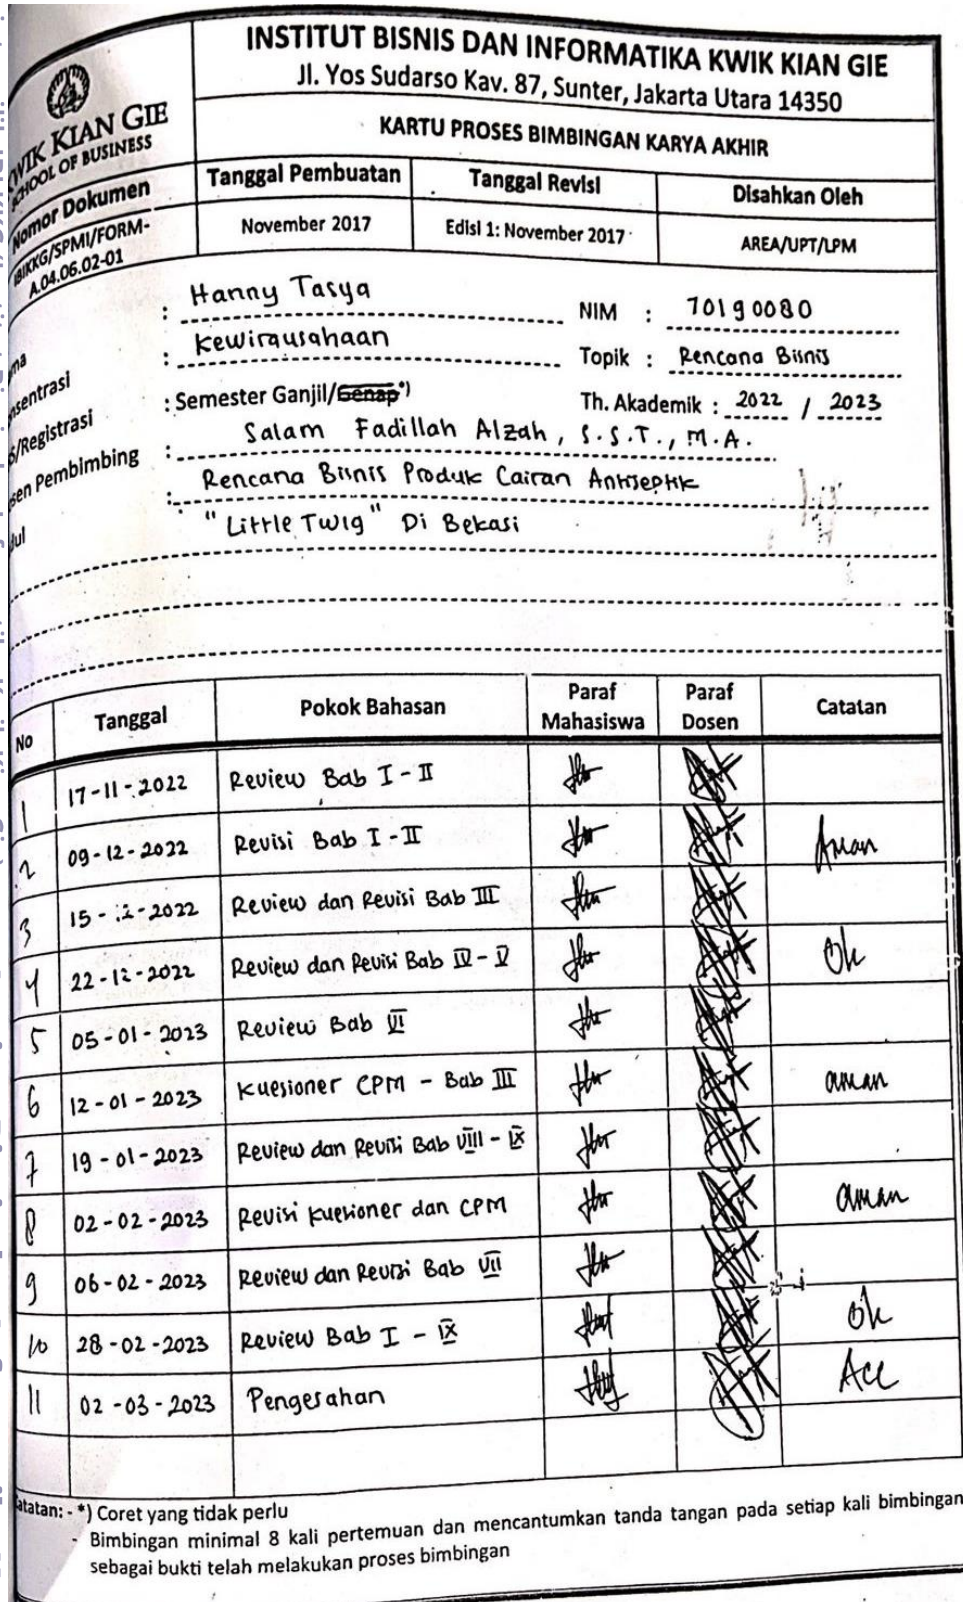 INSTITUT BISNIS DAN INFORMATIKA KWIK KIAN GIE
Jl. Yos Sudarso Kav. 87, Sunter, Jakarta Utara 14350
KWIK KIAN GIE
SCHOOL OF BUSINESS
KARTU PROSES BIMBINGAN KARYA AKHIR
Nomor Dokumen Tanggal Pembuatan Tanggal Revisi Disahkan Oleh
IBIKKG/SPMI/FORM-
A.04.06.02-01
November 2017 Edisi 1: November 2017 AREA/UPT/LPM
ma : Hanny Tasya NIM : 70190080
nsentrasi : Kewirausahaan Topik : Rencana Bisnis
/Registrasi : Semester Ganjil/Genap*) Th. Akademik : 2022 / 2023
sen Pembimbing : Salam Fadillah Alzah, S.S.T., M.A.
dul : Rencana Bisnis Produk Cairan Antiseptik
"Little Twig" Di Bekasi
No Tanggal Pokok Bahasan Paraf Mahasiswa Paraf Dosen Catatan
1 17-11-2022 Review Bab I - II
2 09-12-2022 Revisi Bab I - II Aman
3 15-12-2022 Review dan Revisi Bab III
4 22-12-2022 Review dan Revisi Bab IV - V Ok
5 05-01-2023 Review Bab VI
6 12-01-2023 Kuesioner CPM - Bab III aman
7 19-01-2023 Review dan Revisi Bab VIII - IX
8 02-02-2023 Revisi Kuesioner dan CPM aman
9 06-02-2023 Review dan Revisi Bab VII
10 28-02-2023 Review Bab I - IX Ok
11 02-03-2023 Pengesahan Acc
atatan: - *) Coret yang tidak perlu
- Bimbingan minimal 8 kali pertemuan dan mencantumkan tanda tangan pada setiap kali bimbingan
sebagai bukti telah melakukan proses bimbingan